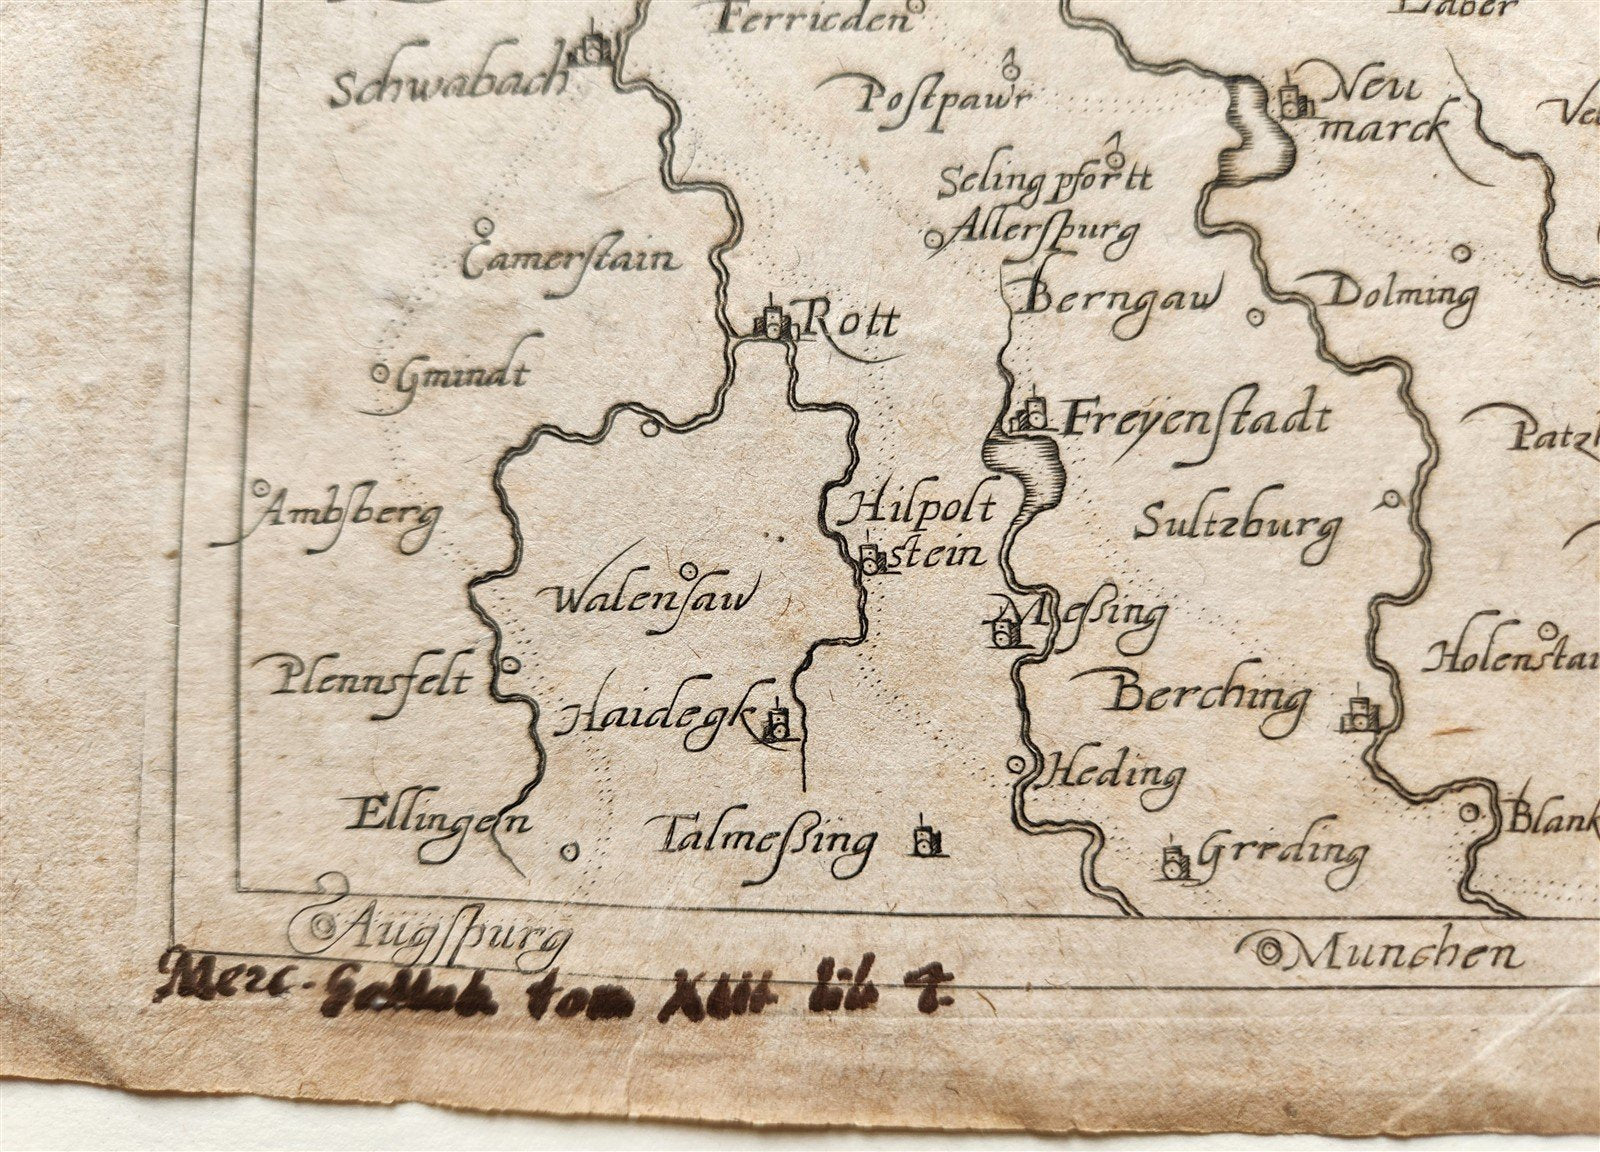 Ferrieden
Laber
Schwabach
Postpawr
Neu
marck
Seling pfortt
Allerspurg
Camerstain
Berngaw
Dolming
Rott
Gmindt
Freyenstadt
Ambsberg
Hilpolt
stein
Sultzburg
Walensaw
Meßing
Plennsfelt
Haidegk
Berching
Heding
Ellingen
Talmeßing
Greding
Augspurg
Munchen
Merc. Gallob tom XIII lib 4.